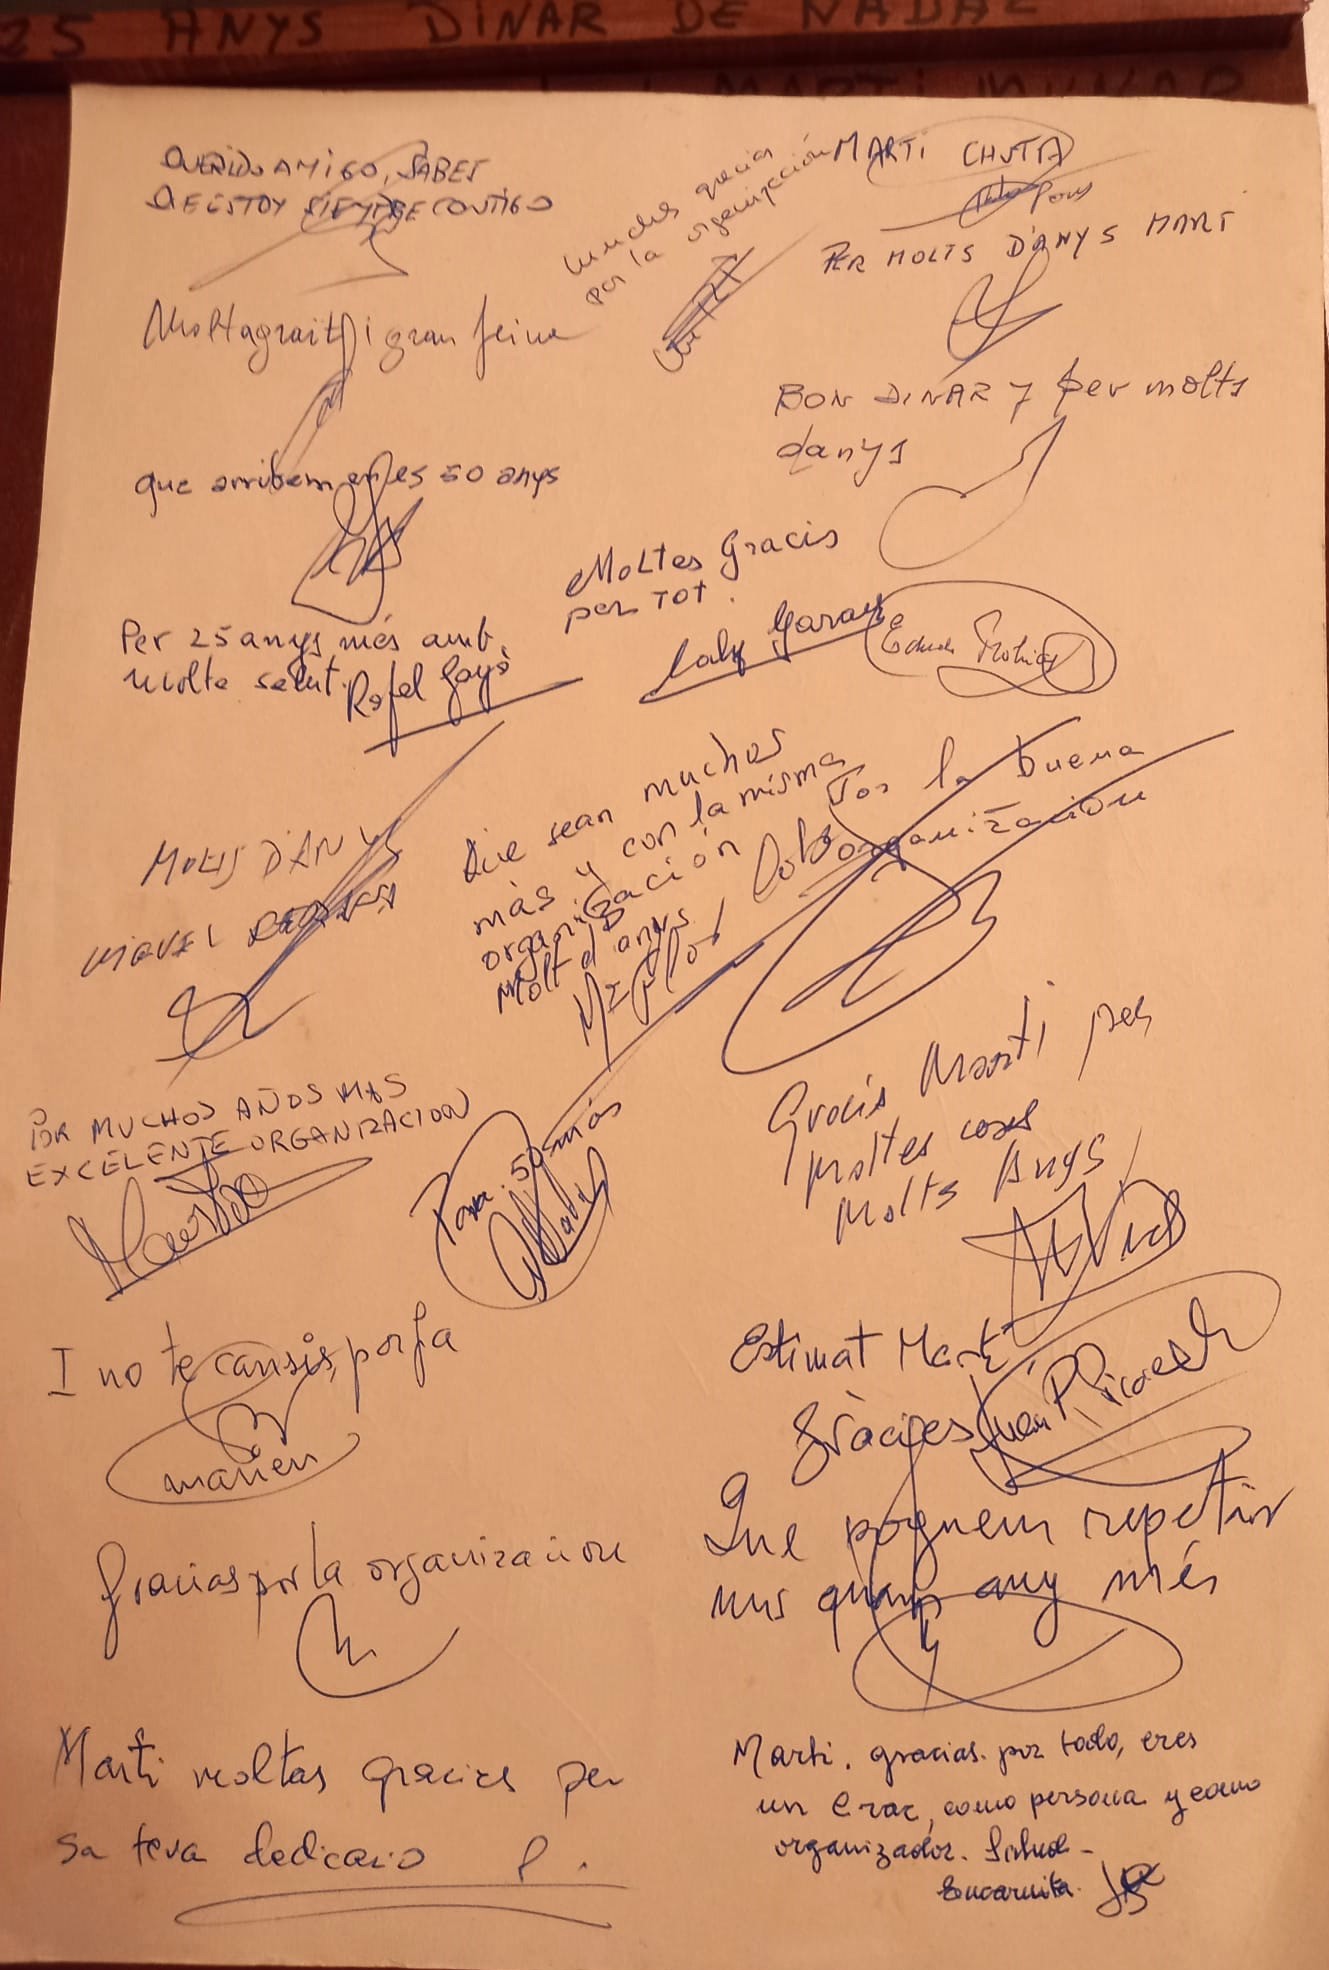 25 ANYS DINAR DE NADAL
MARTI
QUERIDO AMIGO, SABES
QE ESTOY SIEMPRE CONTIGO
muchas gracias
por la organización
MARTI CHUTA
Pons
PER MOLTS D'ANYS MARTI
Molt agrait i gran feina
BON DINAR Y per molts
danys
que arribem en es 50 anys
Moltes Gracis
per TOT.
Per 25 anys més amb
molta salut. Rafel Gayà
Laly Garau
MOLTS DANYS
MIQUEL
Que sean muchos
más y con la misma
organización
Molt d'anys
Mª Flor
Por la buena
organización
POR MUCHOS AÑOS MAS
EXCELENTE ORGANIZACION
Para 50 más
Gracis Marti per
moltes coses
Molts Anys
I no te cansis, porfa
marien
Estimat Martí
Gràcies
Juan P.
Gracias por la organización
Que poguem repetir
uns quans any més
Marti moltas gracies per
sa teva dedicació
Marti. gracias por todo, eres
un crac, como persona y como
organizador. Salud-
Encarnita.